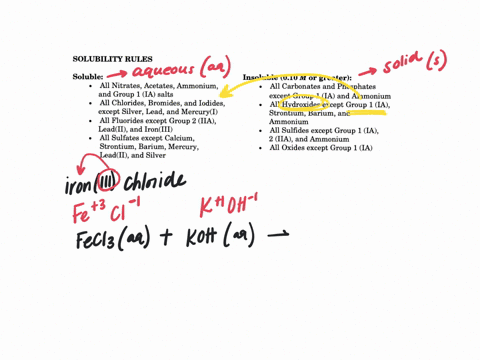 SOLUBILITY RULES
Soluble: → aqueous (aq)
• All Nitrates, Acetates, Ammonium,
and Group 1 (IA) salts
• All Chlorides, Bromides, and Iodides,
except Silver, Lead, and Mercury(I)
• All Fluorides except Group 2 (IIA),
Lead(II), and Iron(III)
• All Sulfates except Calcium,
Strontium, Barium, Mercury,
Lead(II), and Silver
Insoluble (0.10 M or greater): → solid (s)
• All Carbonates and Phosphates
except Group 1 (IA) and Ammonium
• All Hydroxides except Group 1 (IA),
Strontium, Barium, and
Ammonium
• All Sulfides except Group 1 (IA),
2 (IIA), and Ammonium
• All Oxides except Group 1 (IA)
iron (III) chloride
Fe+3 Cl-1 K+1 OH-1
FeCl3 (aq) + KOH (aq) →